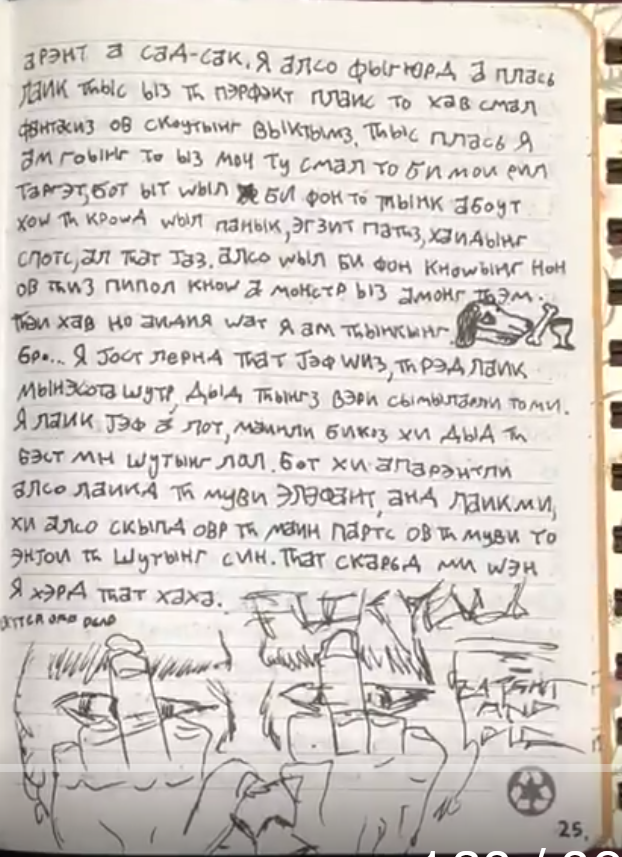 арэнт а сад-сак. Я алсо фыгюрд а плась
лаик тhыс ыз тh пэрфэкт плаис то хав смал
фантасиз ов скоутынг выктымз. Тhыс плась Я
ам гоынг то ыз моч ту смал то би мои рил
таргэт, бот ыт wыл би фон то тhынк абоут
хоw тh кроwд wыл панык, эгзит патhз, хаидынг
спотс, ал тhат Jаз. алсо wыл би фон кноwынг нон
ов тhиз пипол кноw а монстр ыз амонг тhэм.
тhэи хав но аидия wат я ам тhынкынг.
бро... Я Jост лернд тhат Jэф wиз, тh рэд лаик
мынэсота шутр, дыд тhынгз вэри сымыларли то ми.
Я лаик Jэф а лот, маинли бикоз хи дыд тh
бэст мн шутынг лал. бот хи апарэнтли
алсо лаикд тh муви элэфант, анд лаик ми,
хи алсо скыпд овр тh маин партс ов тh муви то
энJои тh шутынг син. тhат скарьд ми wэн
Я хэрд тhат хаха.
EAT SHIT
AND
DIE
25.